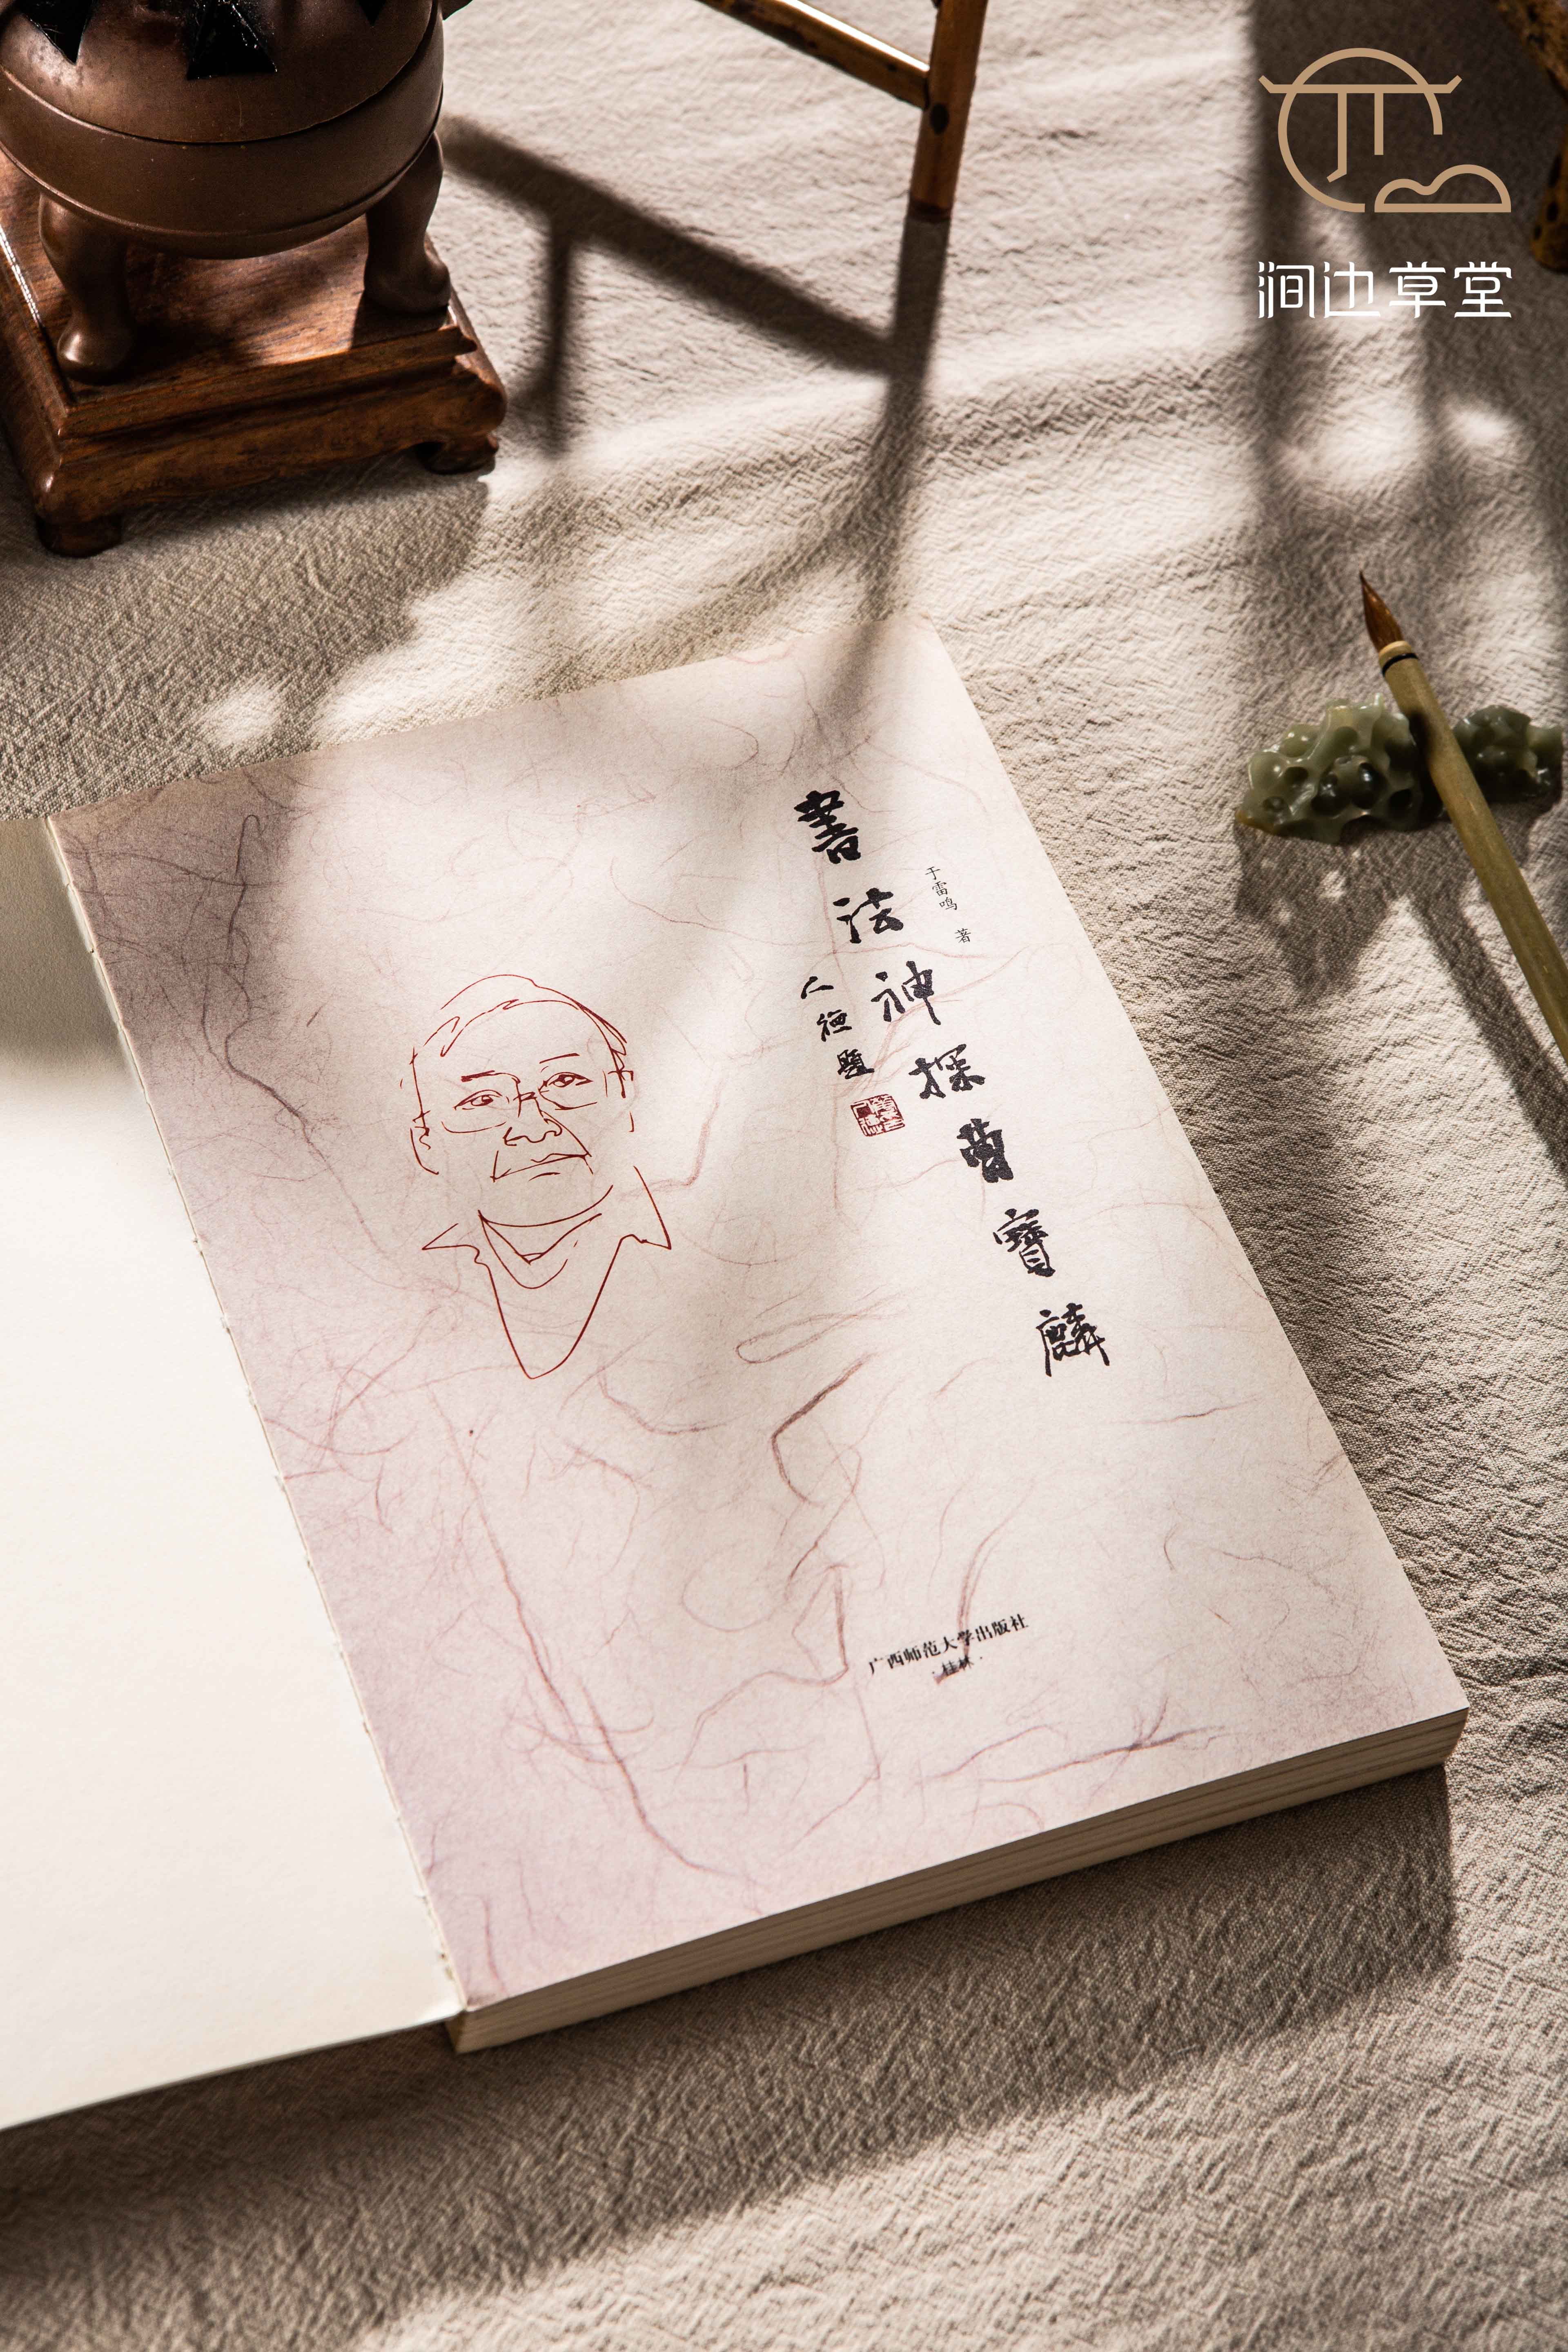 涧边草堂
于雷鸣 著
書法神探曹寶麟
仁
題
广西师范大学出版社
·桂林·